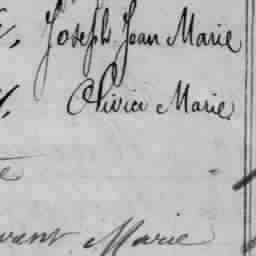 Joseph Jean Marie
Olivier Marie
Marie